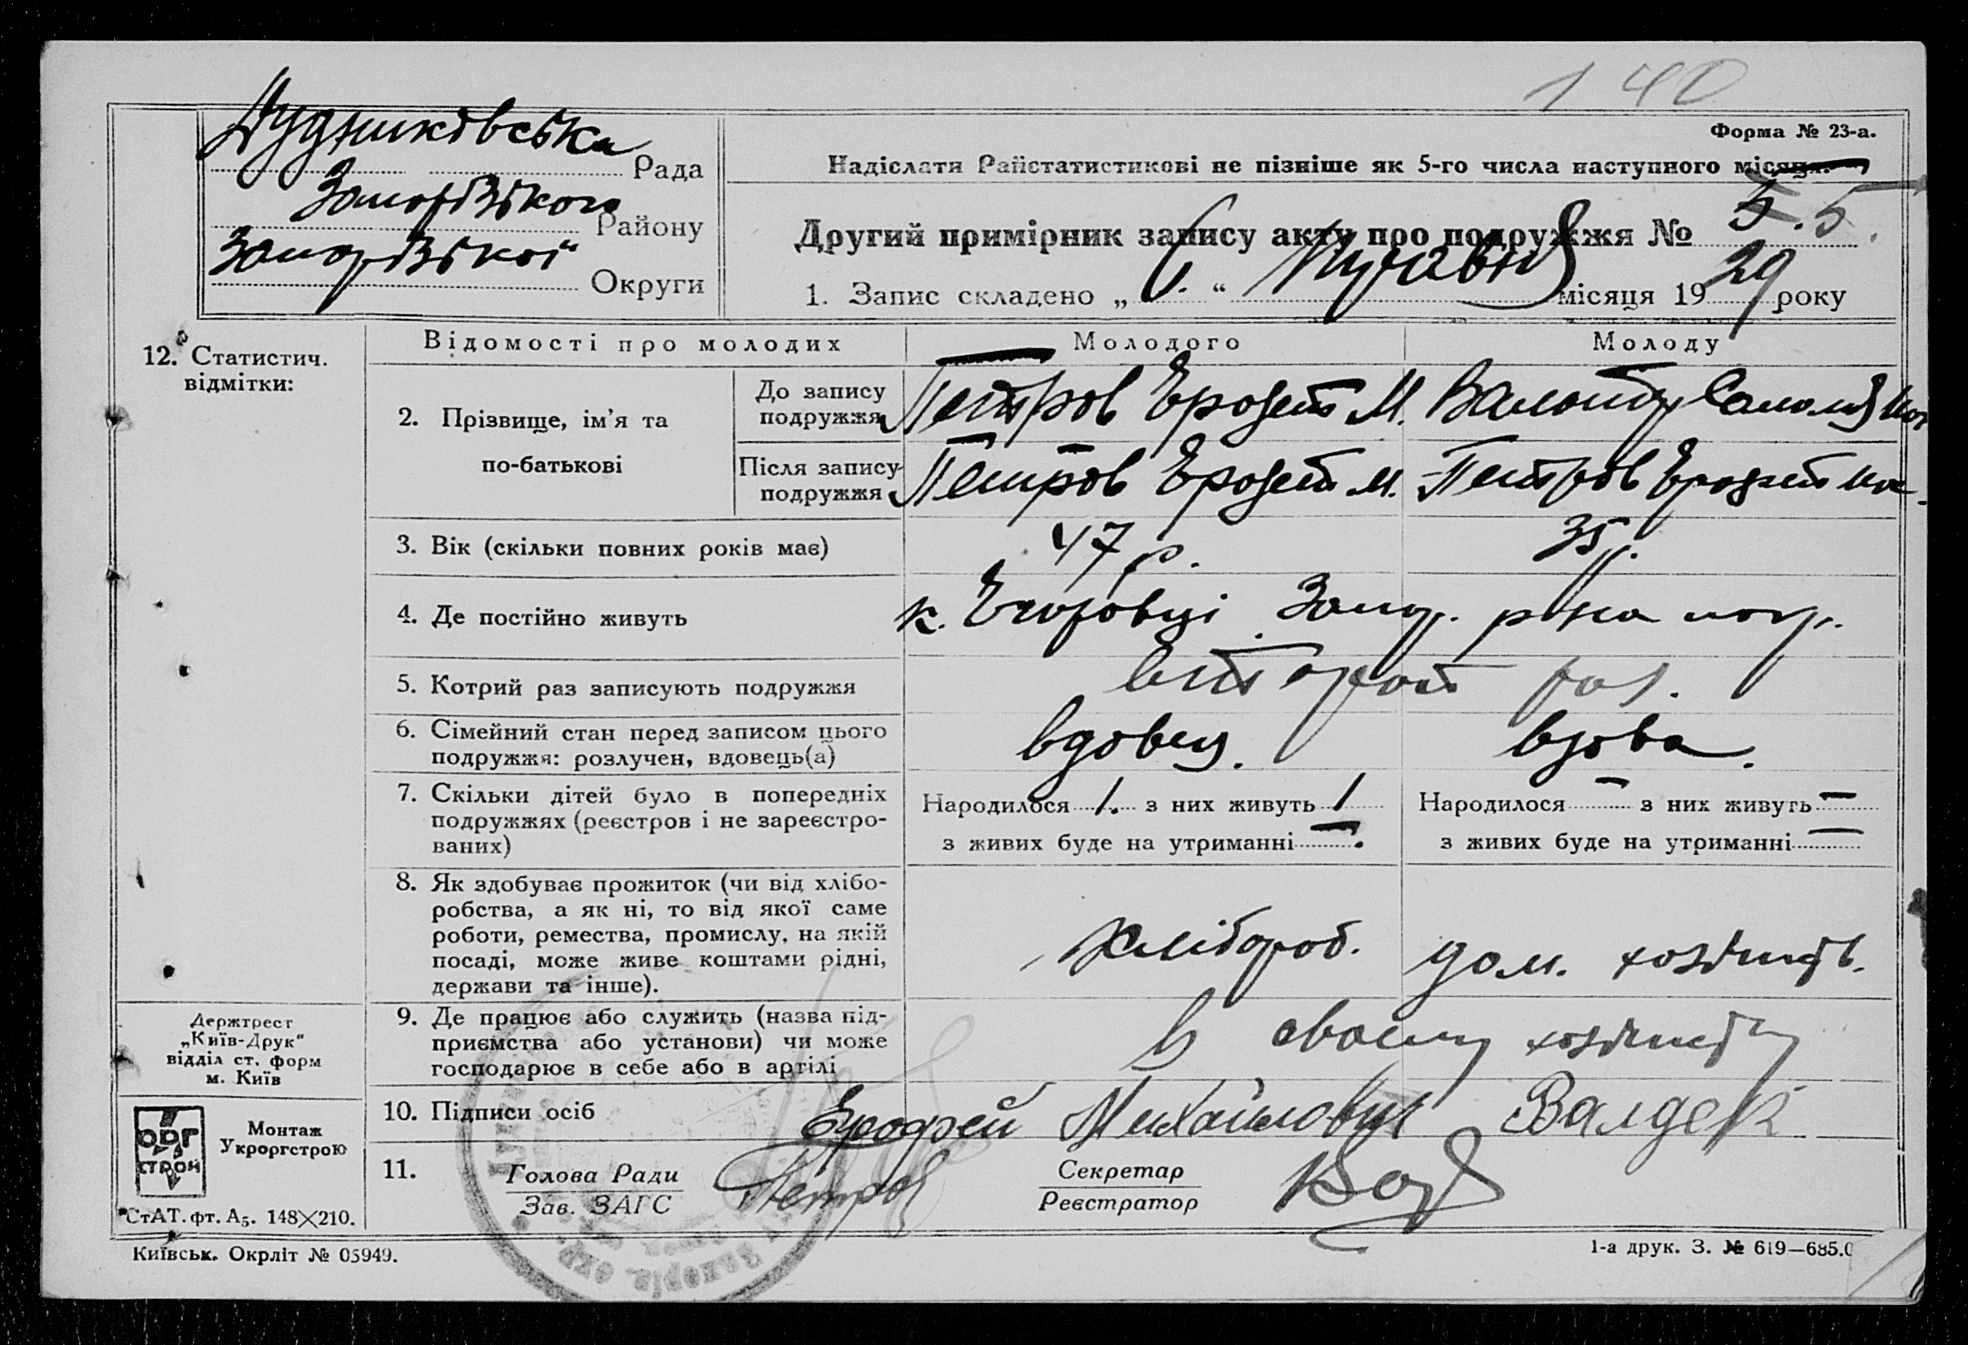 140
Форма № 23-а.
Дудниківська Рада
Надіслати Райстатистикові не пізніше як 5-го числа наступного місяця.
Району
Другий примірник запису акту про подружжя № 5. 5.
Округи
1. Запис складено „ 6. “ місяця 1929 року
12. Статистич. відмітки:
Відомості про молодих
Молодого
Молоду
2. Прізвище, ім’я та по-батькові
До запису подружжя
Петров Ерофей М.
Після запису подружжя
Петров Ерофей М.
Петров
3. Вік (скільки повних років має)
47 р.
35 р.
4. Де постійно живуть
к.
5. Котрий раз записують подружжя
второй раз.
6. Сімейний стан перед записом цього подружжя: розлучен, вдовець(а)
вдовец.
вдова.
7. Скільки дітей було в попередніх подружжях (реєстров і не зареєстрованих)
Народилося 1. з них живуть 1
з живих буде на утриманні — .
Народилося — з них живуть —
з живих буде на утриманні —
8. Як здобуває прожиток (чи від хліборобства, а як ні, то від якої саме роботи, ремества, промислу, на якій посаді, може живе коштами рідні, держави та інше).
хлібороб.
дом. хозяйств.
9. Де працює або служить (назва підприємства або установи) чи може господарює в себе або в артілі
В своему хозяйству
10. Підписи осіб
Ерофей Михайлович
Валдек
11. Голова Ради
Зав. ЗАГС
Петров
Секретар
Реєстратор
Держтрест
„Київ-Друк“
відділ ст. форм
м. Київ
ОРГ
СТРОЙ
Монтаж
Укроргстрою
СтАТ. фт. А₅. 148×210.
Київськ. Окрліт № 05949.
1-а друк. З. № 619—685.0